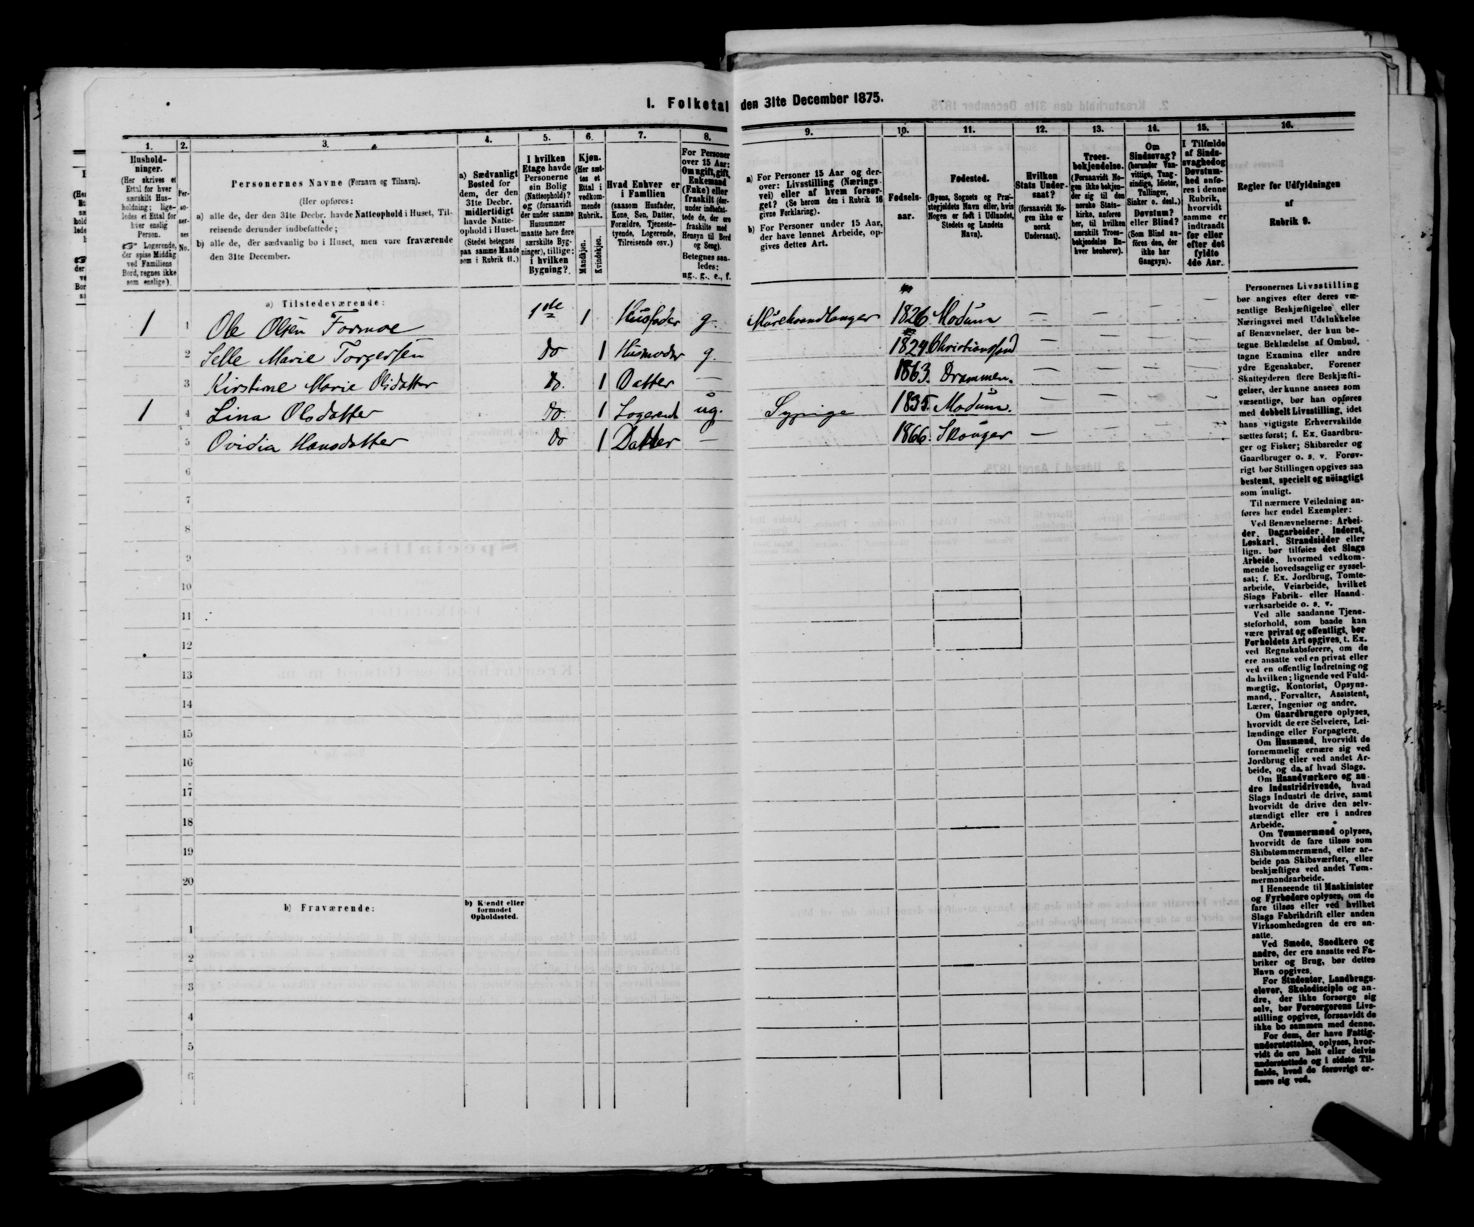 I. Folketal den 31te December 1875.
1. 2. 3. 4. 5. 6. 7. 8. 9. 10. 11. 12. 13. 14. 15. 16.
Hushold-
ninger.
(Her skrives et
Ettal for hver
særskilt Hus-
holdning; lige-
ledes et Ettal for
hver enslig
Person.
☞ Logerende,
der spise Middag
ved Familiens
Bord, regnes ikke
som enslige).
Per-
so-
ner-
nes
No.
Personernes Navne (Fornavn og Tilnavn).
(Her opføres:
a) alle de, der den 31te Decbr. havde Natteophold i Huset, Til-
reisende derunder indbefattede;
b) alle de, der sædvanlig bo i Huset, men vare fraværende
den 31te December.
a) Sædvanligt
Bosted for
dem, der den
31te Decbr.
midlertidigt
havde Natte-
ophold i Huset.
(Stedet betegnes
paa samme Maade
som i Rubrik 11.)
I hvilken
Etage havde
Personerne
sin Bolig
(Natteophold)?
og (forsaavidt
der under samme
Husnummer
maatte høre flere
særskilte Byg-
ninger), tillige:
i hvilken
Bygning?
Kjøn.
(Her sæt-
tes et
Ettal i
vedkom-
mende
Rubrik.
Mandkjøn.
Kvindekjøn.
Hvad Enhver er
i Familien
(saasom Husfader,
Kone, Søn, Datter,
Forældre, Tjeneste-
tyende, Logerende,
Tilreisende osv.)
For Personer
over 15 Aar:
Om ugift, gift,
Enkemand
(Enke) eller
fraskilt
Betegnes saa-
ledes:
ug., g., e., f.
a) For Personer 15 Aar og der-
over: Livsstilling (Nærings-
vei) eller af hvem forsør-
get? (Se herom den i Rubrik 16
givne Forklaring).
b) For Personer under 15 Aar,
der have lønnet Arbeide, op-
gives dettes Art.
Fødsels-
aar.
Fødested.
(Byens, Sognets og Præ-
stegjeldets Navn eller, hvis
Nogen er født i Udlandet,
Stedets og Landets
Navn).
Hvilken
Stats Under-
saat?
(forsaavidt No-
gen ikke er
norsk
Undersaat).
Troes-
bekjendelse.
(Forsaavidt No-
gen ikke bekjen-
der sig til den
norske Stats-
kirke, anføres
her, til hvilken
særskilt Troes-
bekjendelse En-
hver henhører).
Om
Sindssvag?
(herunder Van-
vittige, Tung-
sindige, Idioter,
Tullinger,
Sinker o. desl.)
Døvstum?
eller Blind?
(Som Blind an-
føres den, der
ikke har
Gangsyn).
I Tilfælde
af Sinds-
svaghed og
Døvstum-
hed anfø-
res i denne
Rubrik,
hvorvidt
samme er
indtraadt
før eller
efter det
fyldte
4de Aar.
Regler for Udfyldningen
af
Rubrik 9.
a) Tilstedeværende:
1 1 Ole Olsen Formoe 1ste 1 Husfader g. 1826 Modum — — — —
2 Selle Marie Torgersen do 1 Husmoder g. 1829 Christiansand — — — —
3 Kirstine Marie Olsdatter do. 1 Datter — 1863. Drammen. — — — —
1 4 Lina Olsdatter do. 1 Logerende ug. Sypige 1835. Modum. — — — —
5 Ovidia Hansdatter do 1 Datter — 1866. Skouger — — — —
6
7
8
9
10
11
12
13
14
15
16
17
18
19
20
b) Fraværende:
b) Kjendt eller
formodet
Opholdssted.
1
2
3
4
5
6
Personernes Livsstilling
bør angives efter deres væ-
sentlige Beskjæftigelse eller
Næringsvei med Udelukkelse
af Benævnelser, der kun be-
tegne Beklædelse af Ombud,
tagne Examina eller andre
ydre Egenskaber. Forener
Skatteyderen flere Beskjæfti-
gelser, der kunne ansees som
væsentlige, bør han opføres
med dobbelt Livsstilling, idet
hans vigtigste Erhvervskilde
sættes først; f. Ex. Gaardbru-
ger og Fisker; Skibsreder og
Gaardbruger o. s. v. Forøv-
rigt bør Stillingen opgives saa
bestemt, specielt og nöiagtigt
som muligt.
Til nærmere Veiledning an-
føres her endel Exempler:
Ved Benævnelserne: Arbei-
der, Dagarbeider, Inderst,
Løskarl, Strandsidder eller
lign. bør tilføies det Slags
Arbeide, hvormed vedkom-
mende hovedsagelig er syssel-
sat; f. Ex. Jordbrug, Tomte-
arbeide, Veiarbeide, hvilket
Slags Fabrik- eller Haand-
værksarbeide o. s. v.
Ved alle saadanne Tjene-
steforhold, som baade kan
være privat og offentligt, bør
Forholdets Art opgives, f. Ex.
ved Regnskabsførere, om de
ere ansatte ved en privat eller
ved en offentlig Indretning og
da hvilken; lignende ved Fuld-
mægtig, Kontorist, Opsyns-
mand, Forvalter, Assistent,
Lærer, Ingeniør og andre.
Om Gaardbrugere oplyses,
hvorvidt de ere Selveiere, Lei-
lændinge eller Forpagtere.
Om Husmænd, hvorvidt de
fornemmelig ernære sig ved
Jordbrug eller ved andet Ar-
beide, og da af hvad Slags.
Om Haandværkere og an-
dre Industridrivende, hvad
Slags Industri de drive, samt
hvorvidt de drive den selv-
stændigt eller ere i andres
Arbeide.
Om Tømmermænd oplyses,
hvorvidt de fare tilsøs som
Skibstømmermænd, eller ar-
beide paa Skibsværfter, eller
beskjæftiges ved andet Tøm-
mermandsarbeide.
I Henseende til Maskinister
og Fyrbødere oplyses, om de
fare tilsøs eller ved hvilket
Slags Fabrikdrift eller anden
Virksomhedsgren de ere an-
satte.
Ved Smede, Snedkere og
andre, der ere ansatte ved Fa-
briker og Brug, bør dettes
Navn opgives.
For Studenter, Landbrugs-
elever, Skoledisciple og an-
dre, der ikke forsørge sig
selv, bør Forsørgerens Livs-
stilling opgives, forsaavidt de
ikke bo sammen med denne.
For dem, der have Fattig-
understøttelse, oplyses, hvor-
vidt de ere helt eller delvis
understøttede og i sidste Til-
fælde, hvad de forøvrigt er-
nære sig ved.